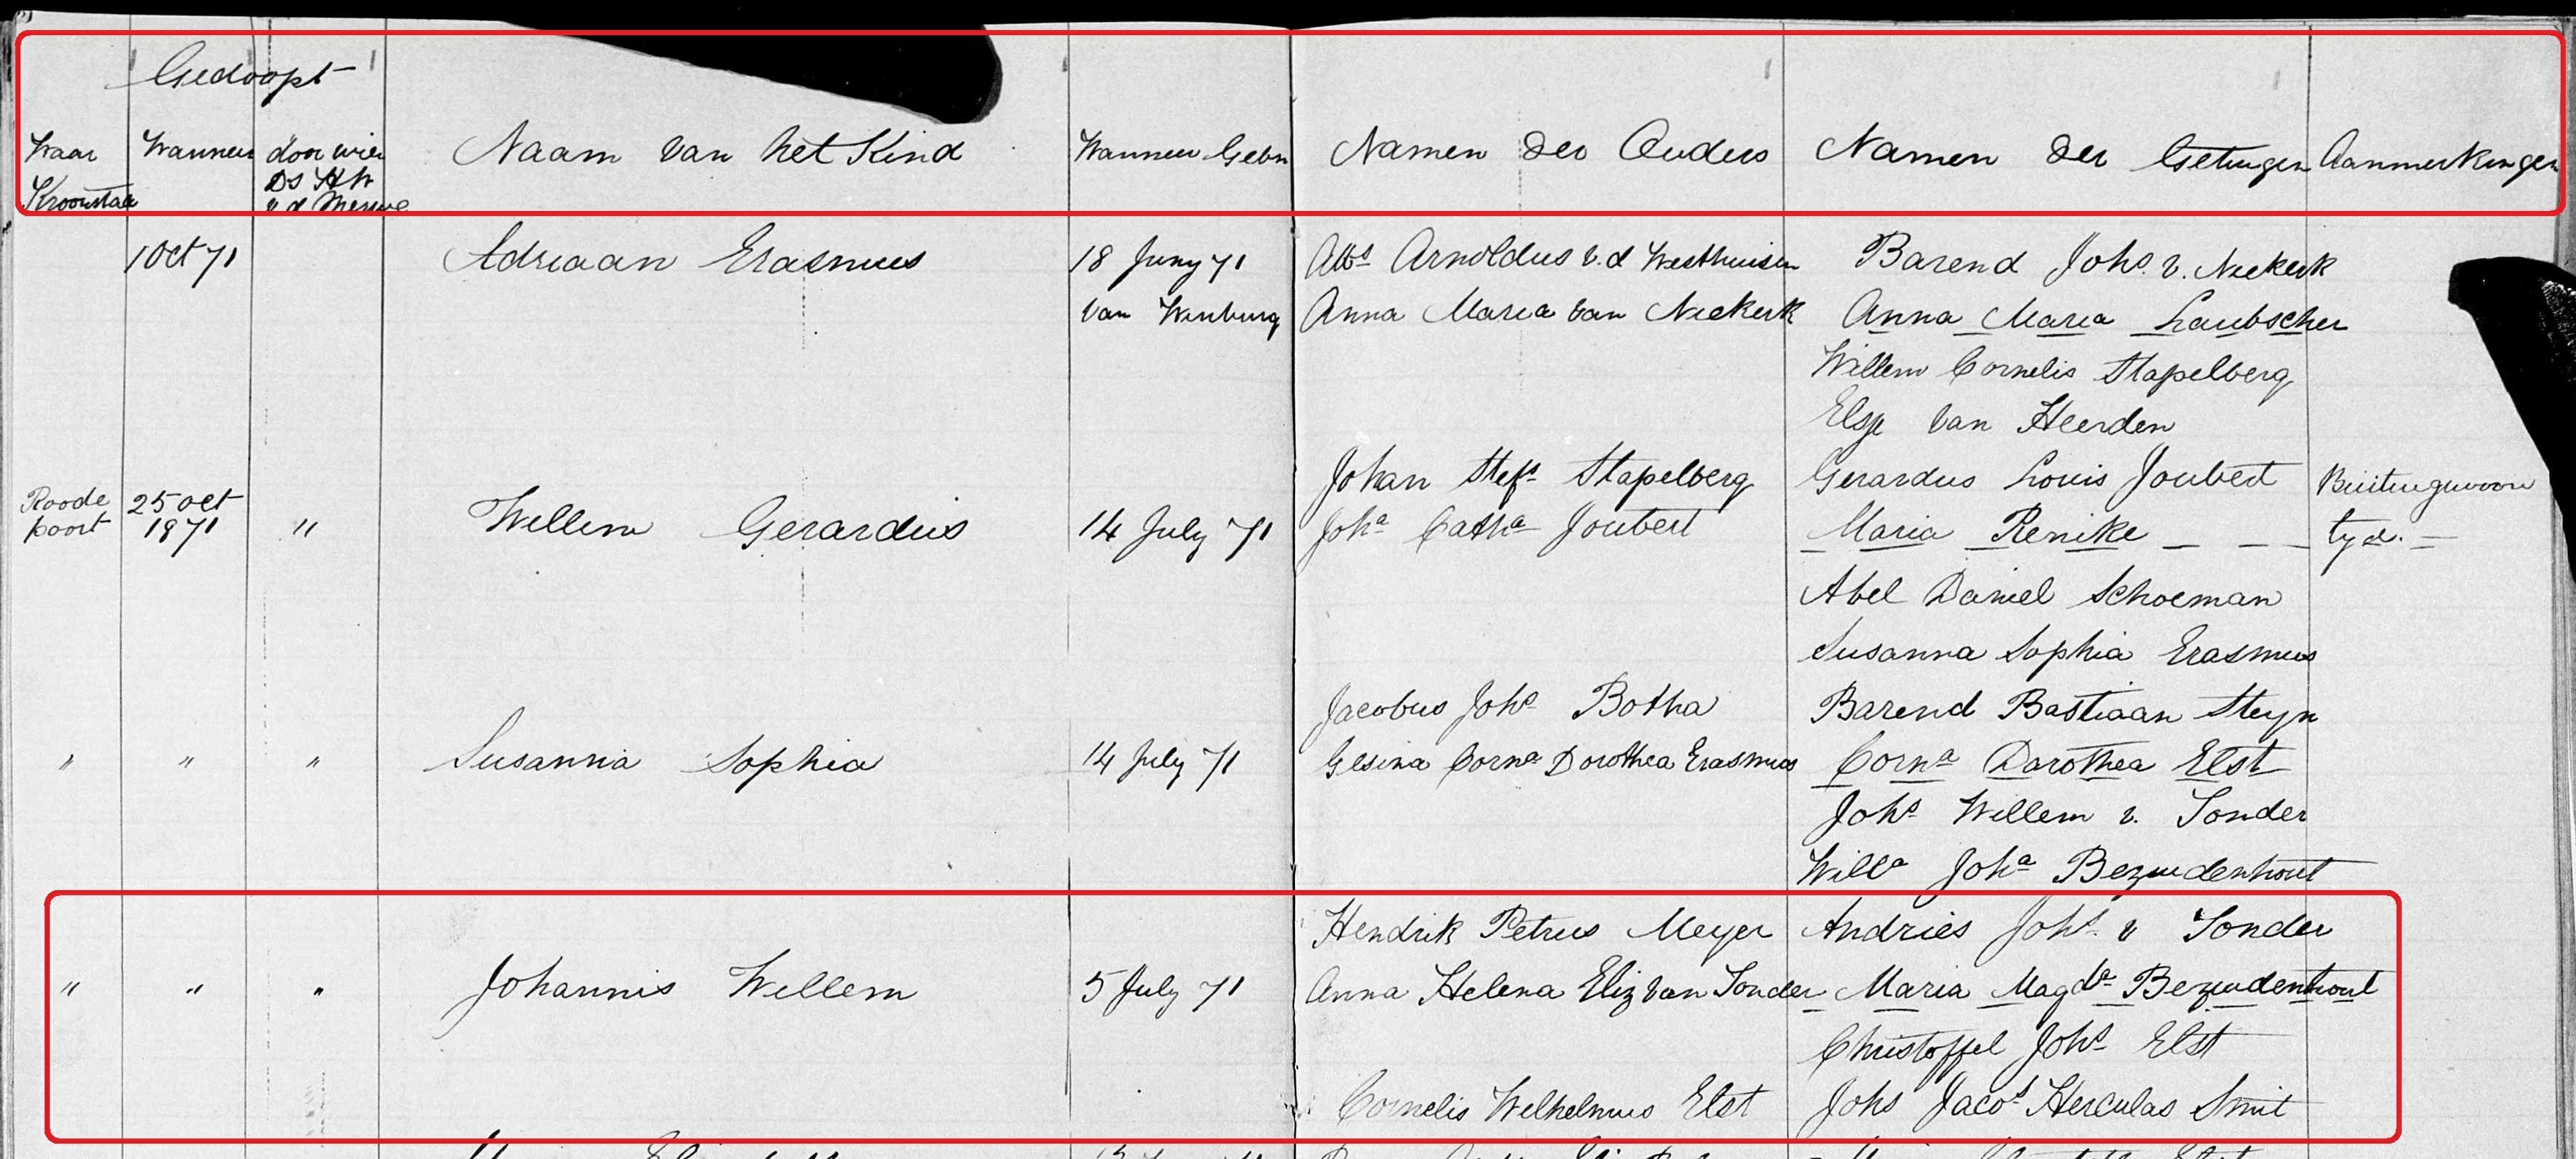 Gedoopt
Waar Wanneer door wien Naam van het Kind Wanneer Gebn Namen der Ouders Namen der Getuigen Aanmerkingen
Kroonstad Ds HW
v d Merwe
1 Oct 71 Adriaan Erasmus 18 Juny 71 Albs Arnoldus v.d Westhuisen Barend Johs. v. Niekerk
van Winburg Anna Maria van Niekerk Anna Maria Laubscher
Willem Cornelis Stapelberg
Elsje van Heerden
Johan Stefs Stapelberg Gerardus Louis Joubert Buitengewoon
Roode poort 25 Oct 1871 " Willem Gerardus 14 July 71 Joha Catha Joubert Maria Renike tyd.
Abel Daniel Schoeman
Susanna Sophia Erasmus
Jacobus Johs Botha Barend Bastiaan Steyn
" " " Susanna Sophia 14 July 71 Gesina Corna Dorothea Erasmus Corna Dorothea Elst
Johs Willem v. Tonder
Willa Joha Bezuidenhout
Hendrik Petrus Meyer Andries Johs. v Tonder
" " " Johannis Willem 5 July 71 Anna Helena Eliz van Tonder Maria Magda Bezuidenhout
Christoffel Johs Elst
Cornelis Wilhelmus Elst Johs Jacos Herculas Smit